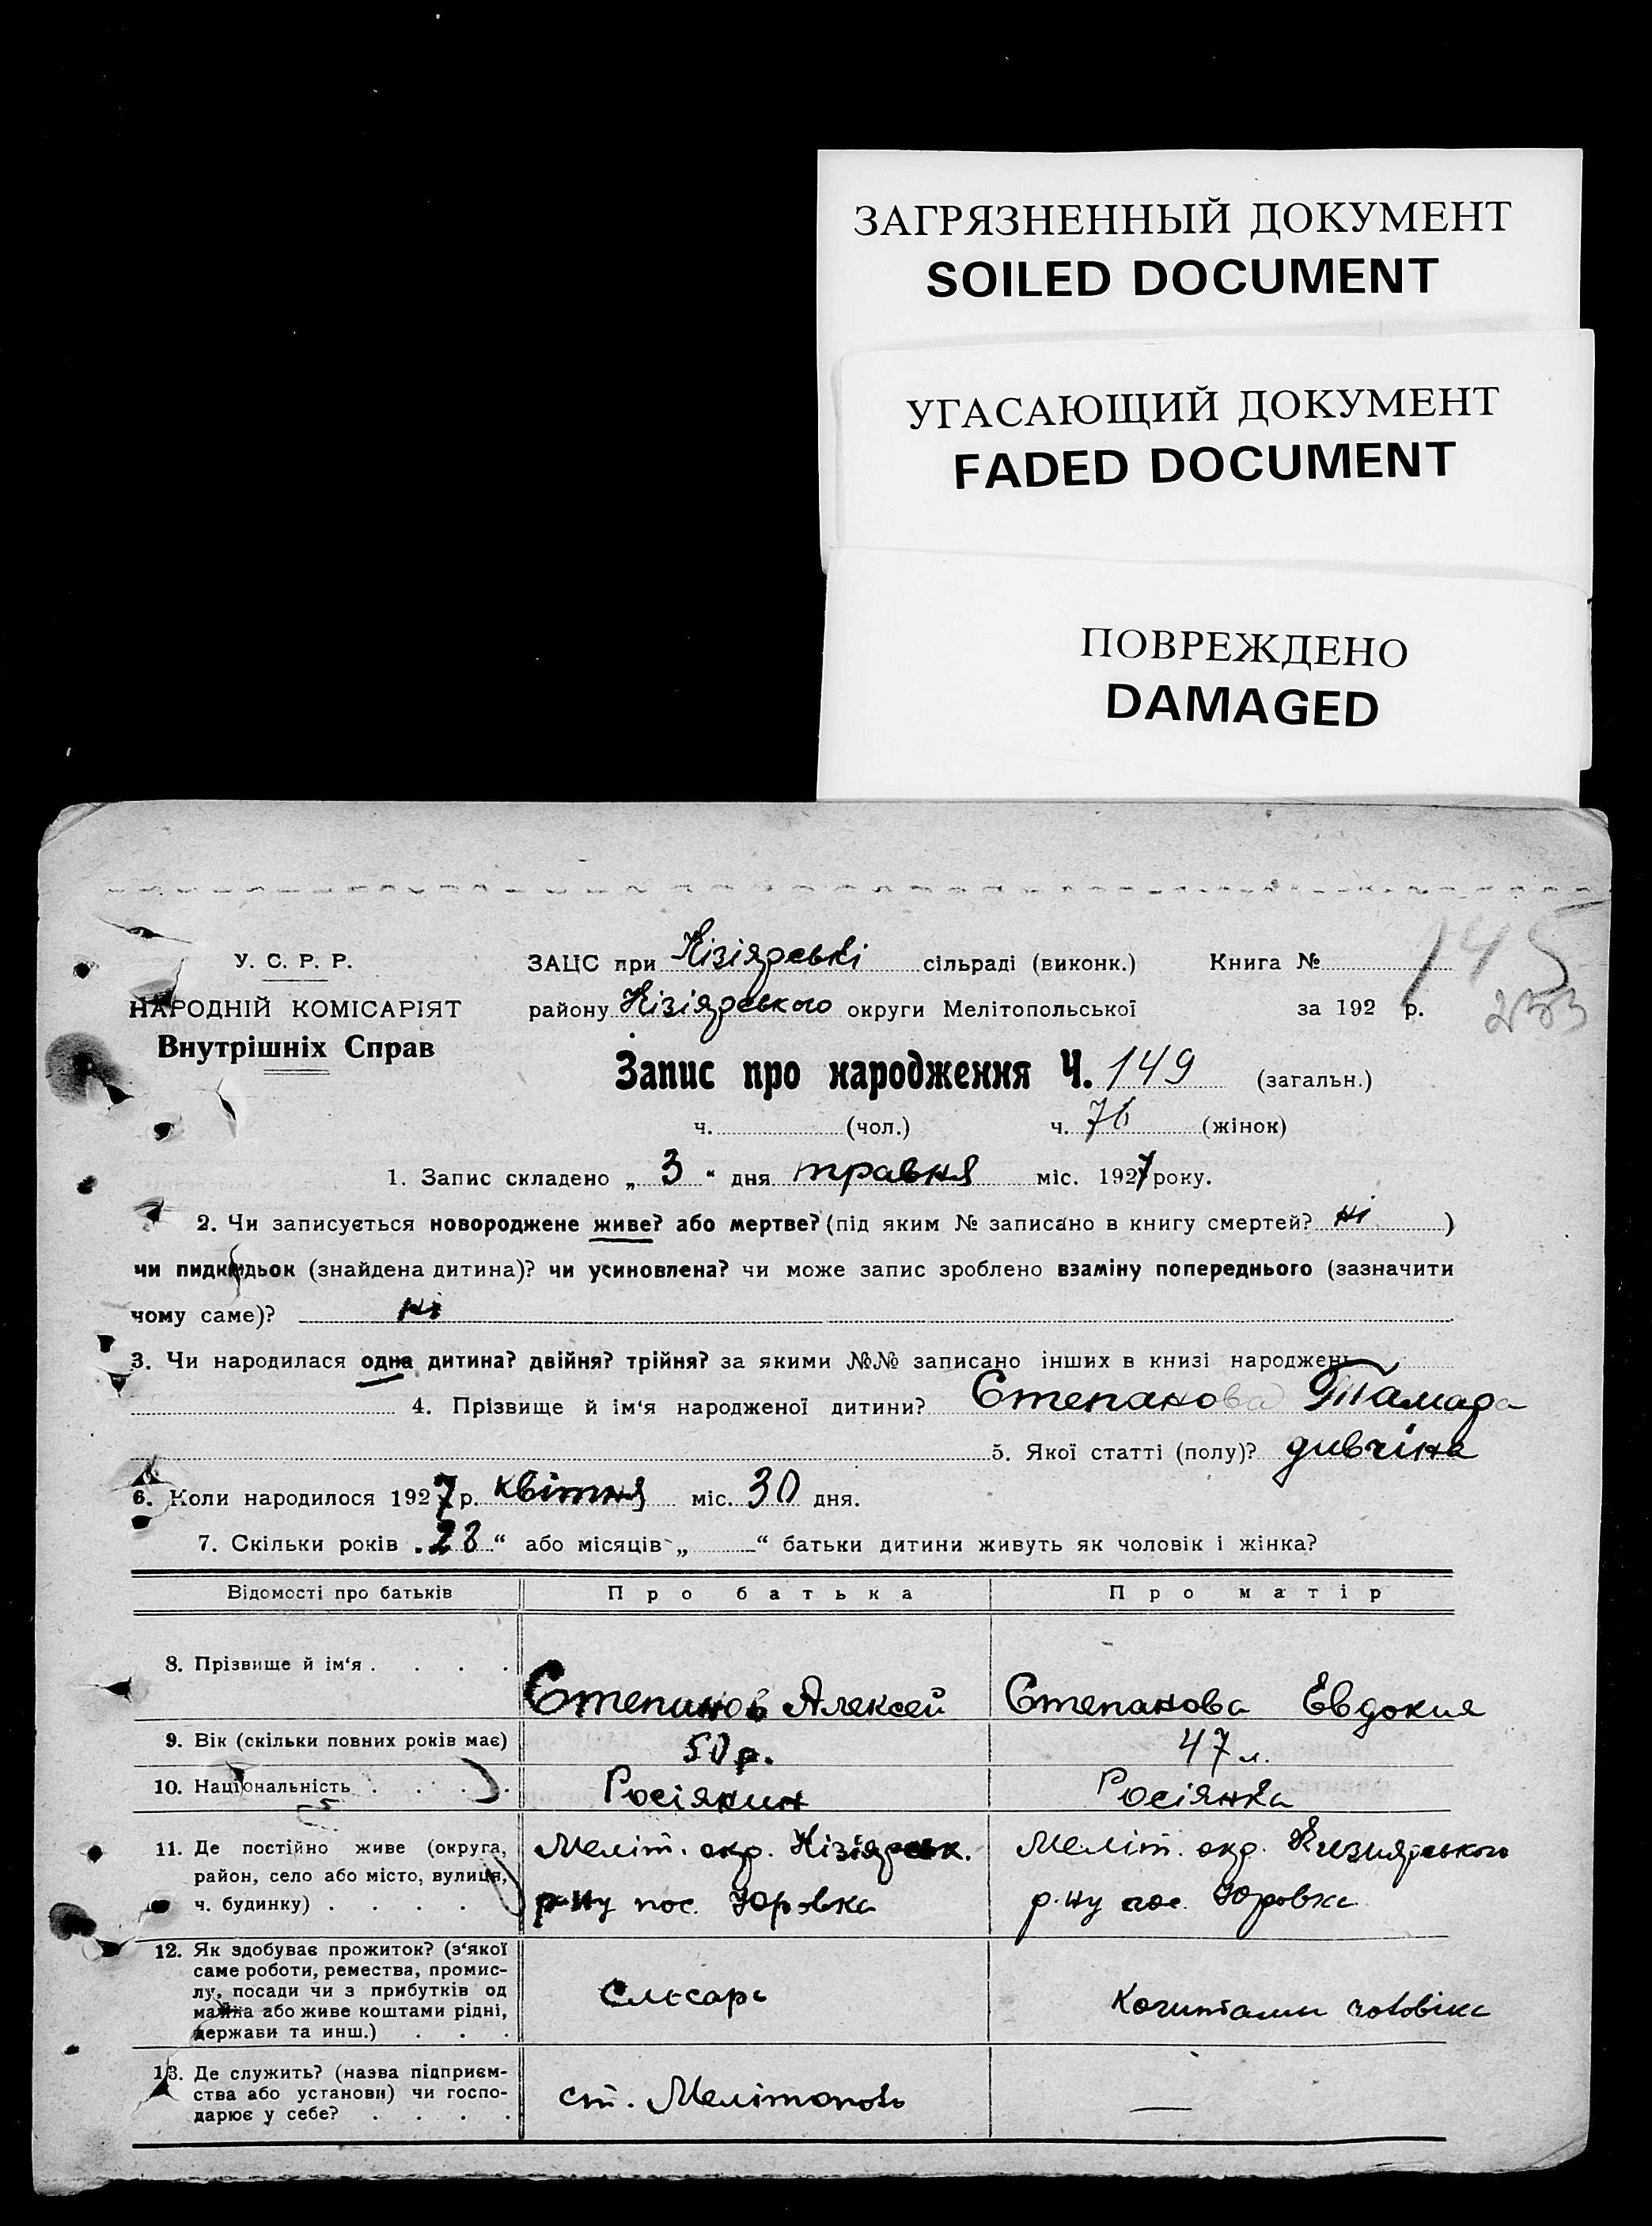 ЗАГРЯЗНЕННЫЙ ДОКУМЕНТ
SOILED DOCUMENT
УГАСАЮЩИЙ ДОКУМЕНТ
FADED DOCUMENT
ПОВРЕЖДЕНО
DAMAGED
145
233
У. С. Р. Р.
НАРОДНІЙ КОМІСАРІЯТ
Внутрішніх Справ
ЗАЦС при Кізіярські сільраді (виконк.) Книга №
району Кізіярського округи Мелітопольської за 192 р.
Запис про народження Ч. 149 (загальн.)
ч. (чол.) ч. 76 (жінок)
1. Запис складено „ 3 “ дня травня міс. 1927 року.
2. Чи записується новороджене живе? або мертве? (під яким № записано в книгу смертей? ні )
чи пидкидьок (знайдена дитина)? чи усиновлена? чи може запис зроблено взаміну попереднього (зазначити
чому саме)? ні
3. Чи народилася одна дитина? двійня? трійня? за якими №№ записано інших в книзі народжень
4. Прізвище й ім'я народженої дитини? Степанова Тамара
5. Якої статті (полу)? дивчіна
6. Коли народилося 1927 р. квітня міс. 30 дня.
7. Скільки років „ 28 “ або місяців „ “ батьки дитини живуть як чоловік і жінка?
Відомості про батьків Про батька Про матір
8. Прізвище й ім‘я . . . . Степанов Алексей Степанова Евдокия
9. Вік (скільки повних років має) 50 р. 47 л.
10. Національність . . . . Росіянин Росіянка
11. Де постійно живе (округа, район, село або місто, вулиця, ч. будинку) . . . .
Меліт. окр. Кізіярськ.
р-ну пос. Юровка
Меліт. окр. Кизиярського
р-ну пос. Юровка
12. Як здобуває прожиток? (з‘якої
саме роботи, ремества, промис-
лу, посади чи з прибутків од
майна або живе коштами рідні,
держави та инш.) . . .
Слєсарь
чоловіка
13. Де служить? (назва підприєм-
ства або установи) чи госпо-
дарює у себе? . . . .
ст. Мелітополь
—